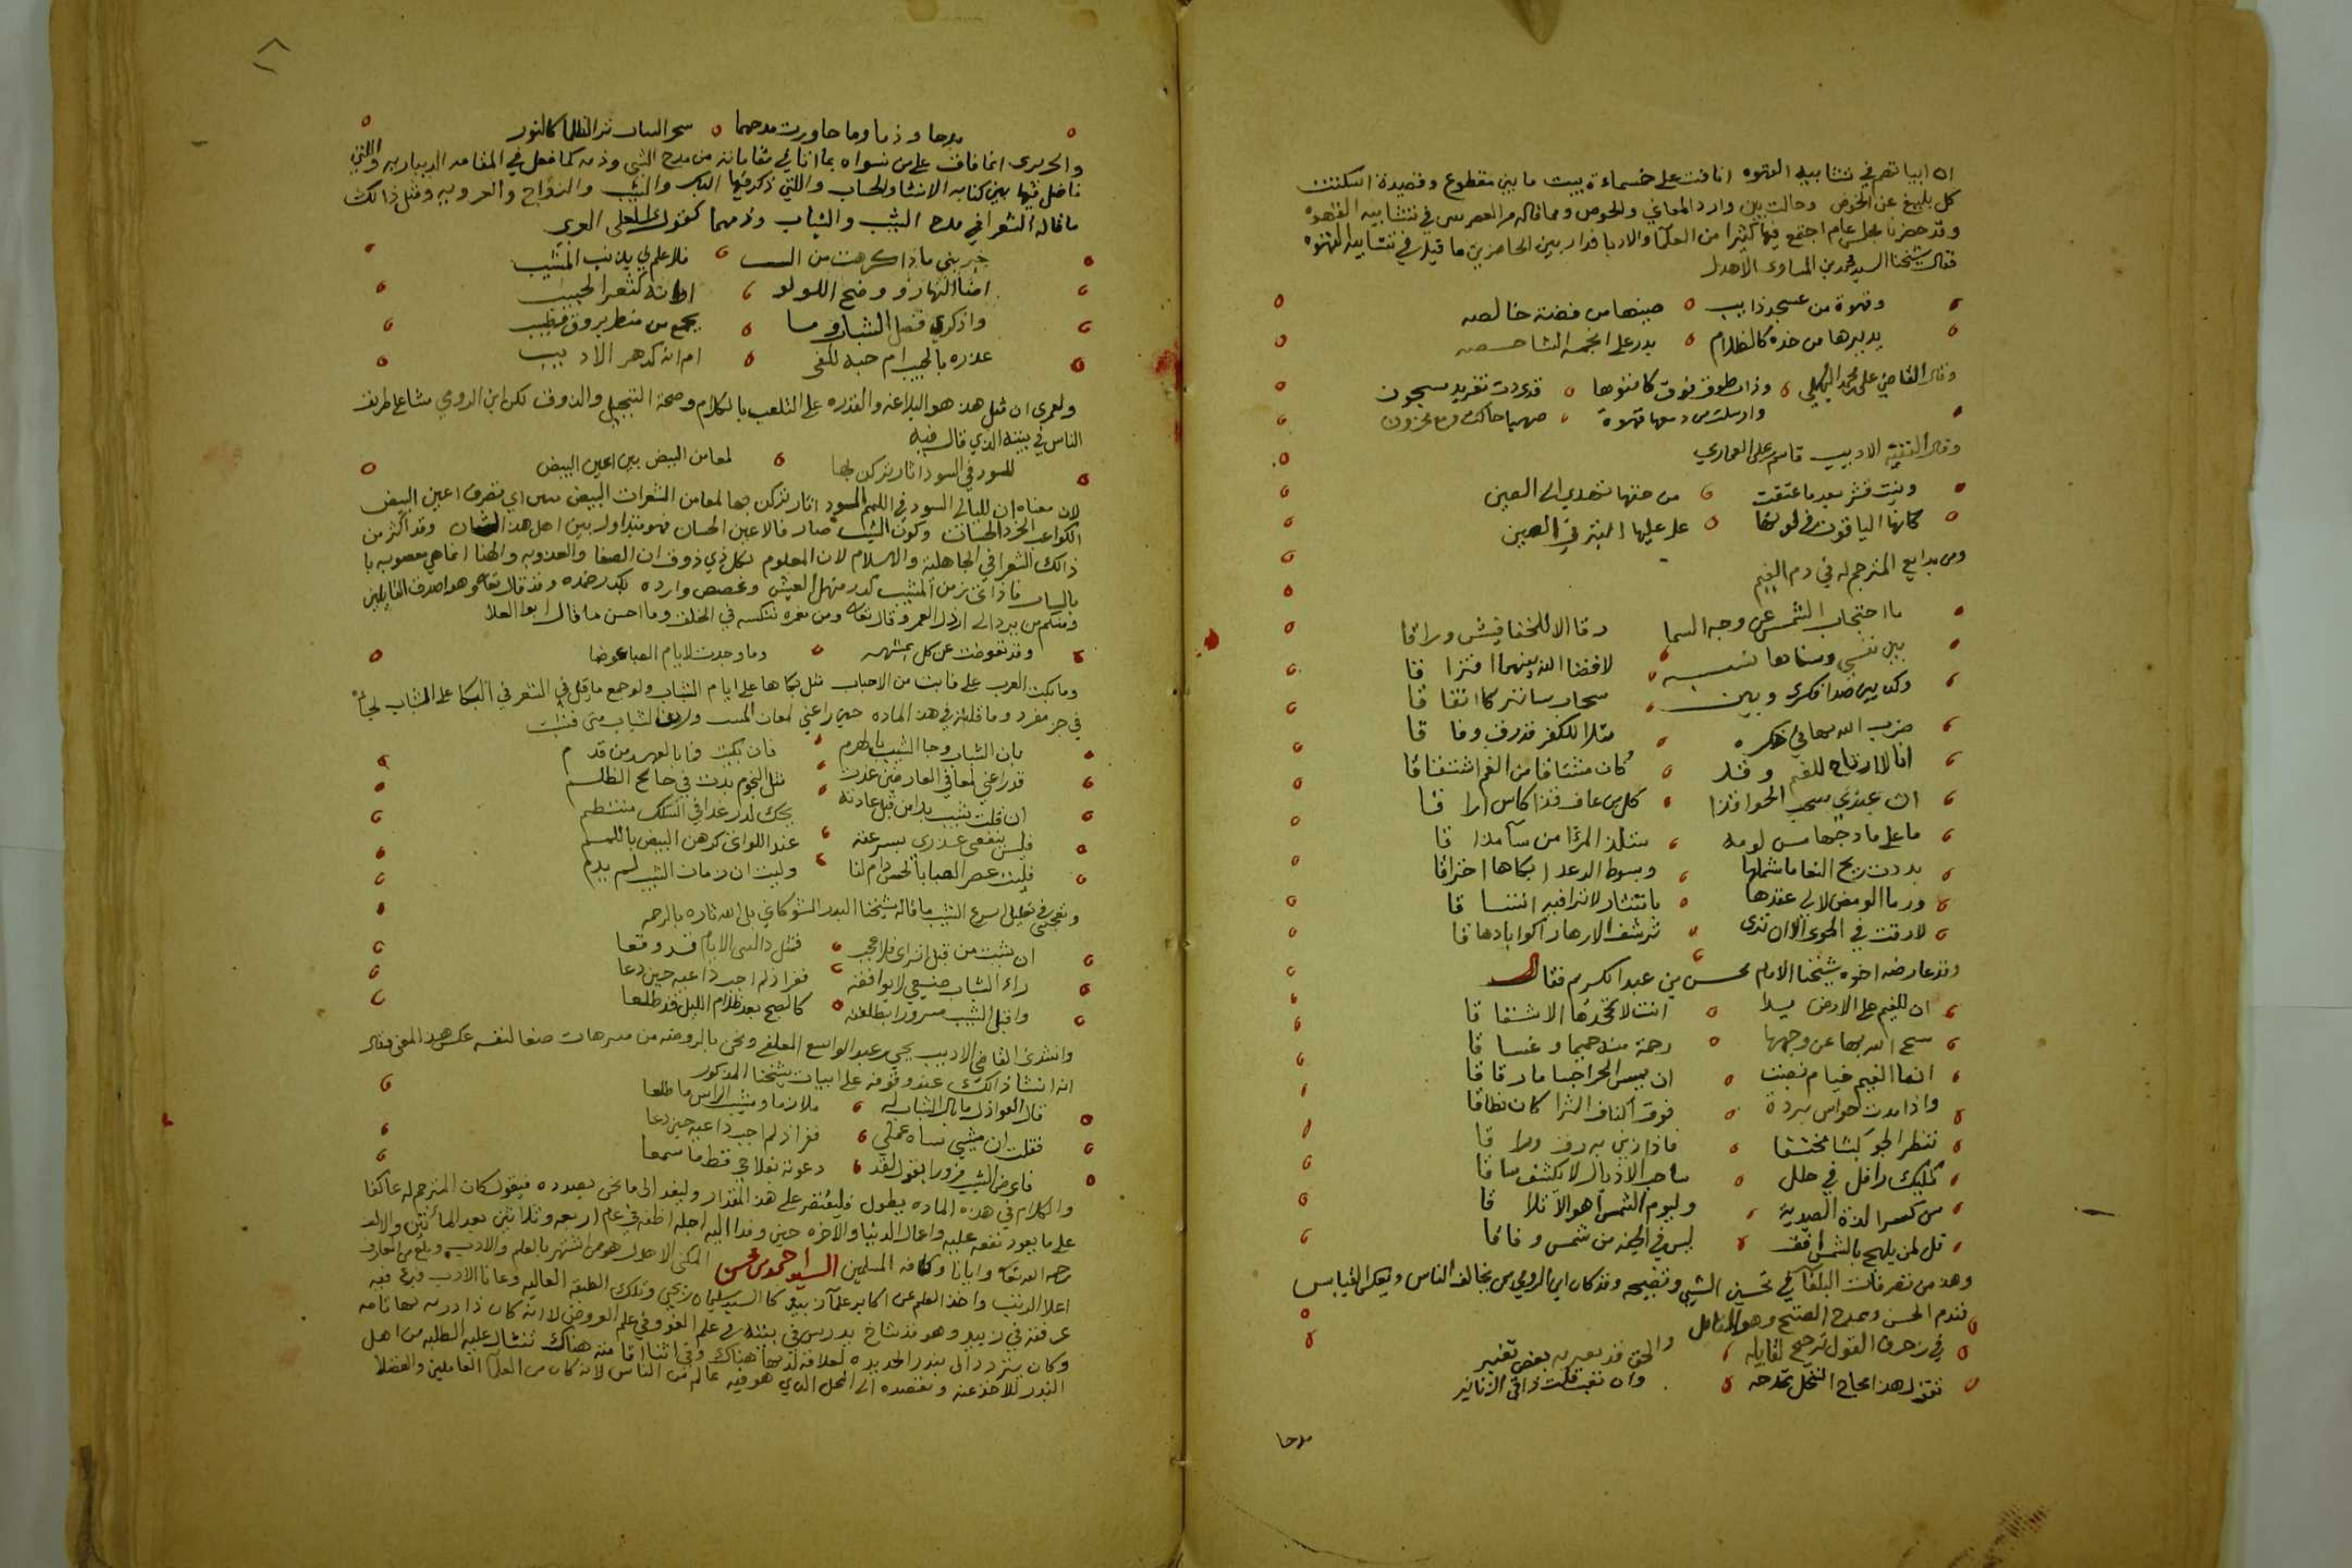 ان ابياتهم في تشابيه القهوه انافت على خمسماءة بيت ما بين مقطوع وقصيدة اسكتت
كل بليغ عن الخوض وحالت بين وارد المعاني والحوض ومما قاله من العصر في تشابيه القهوه
وقد حضرنا مجلس عام اجتمع فيه كثيرا من العلما والادبا فدار بين الحاضرين ما قيل في تشابيه القهوه
فقال شيخنا السيد محمد بن المساوى الاهدل
وقهوة من عسجد ذايب صينها من فضة خالصه
يديرها من خده كالظلام بدر على انجمه الشاخصه
وقال القاضي على محمد وذات طوق فوق كانونها قد رددت تغريد مسجون
وارسلت من دمعها قهوة صهبا حاكت دمع محزون
وقال الفقيه الاديب قاسم على العماري
وبنت قشر بعد ما عتقت من حقها تهدي الى العين
كانها الياقوت في لونها على عليها البنر في الصين
ومن بدايع المترجم له في ذم الغيم
ما احتجاب الشمس عن وجه السما رقا الا للخفافيش وراقا
بين نفسي وسناها نسبه لا قضا الله بينهما افتراقا
وكذا بين ضدا فكري وبين سحاب ساتر كا اتفاقا
ضرب الله بها في ذكره مثلا للكفر قد رق وفاقا
انا لا ارتاح للغيم وقد كان مشتاقا من الغم اشتقاقا
ان عندي سحب الجو اقذا كل من عاف قذا كاس اراقا
ما على مادحها من لومه يستلذ المرا من سآ مذاقا
بددت ريح النعاما شملها وسوط الرعد ابكاها احتراقا
ورما الومض لالى عقدها بانتثار لا ترا فيه اتساقا
لا رقت في الجو الا ان ترى ترشف الازهار اكوابا دهاقا
وقد عارضه اخوه شيخنا الامام محسن بن عبد الكريم فقال
ان للغيم على الارض يدا انت لا تجحدها الا شقاقا
سمح الله بها عن وجهها رحمة منه حميما وغساقا
انما الغيم خيام نصبت ان يمس الحر اجساما رقاقا
واذا مدت حواش برده فوق اكناف الثرا كان نطاقا
تنظر الجو كبشا مختنقا فاذا زين به رق وراقا
كمليك رافل في حلل ساحب الاذيال لا يكشف ساقا
وليوم الشمس اهوالا تلاقا
قل لمن يلهج بالشمس افق ليس في الجنه من شمس وفاقا
وهذا من تصرفات البلغآ في تحسين الشي وتقبيحه وقد كان ابن الرومي من يخالف الناس ويعكس القياس
فتذم الحسن وتمدح القبيح وهو القايل
في زخرف القول ترجيح لقايله والحق قد يعتريه بعض تغيير
تقول هذا مجاج النحل تمدحه وان تعب قلت ذا قي الزنانير
مدحا
مدحا وذما وما جاوزت مدحهما سحر البيان يرى الظلما كالنور
والحريرى انما فاق على من سواه بما اتا في مقاماته من مدح الشي وذمه كما فعل في المقامه الديناريه والتي
فاضل فيها بين كتابه الانشا والحساب والتي ذكر فيها البكر والثيب والزواج والعزوبه ومثل ذالك
ما قاله الشعرا في مدح الشيب والشباب وذمهما كقول المعري
خبريني ماذا كرهت من الشيب فلا علم لي بذنب المشيب
اضيا النهار ووضح اللولو ام انه كثغر الحبيب
واذكري فضل الشباب وما يجمع من منظر يروق وطيب
غدره بالحبيب ام حبه للغي ام انه كدهر الاديب
ولعمري ان مثل هذا هو البلاغه والقدره على التلعب بالكلام وصحة التخييل والذوق لكن ابن الرومي مشا على طريق
الناس في بيته الذي قال فيه
للسود في السود اثار تركن بها لمعا من البيض بين اعين البيض
لان معناه ان لليالي السود في اللمم السود اثار تركن بها لمعا من الشعرات البيض تثني اي تصرف اعين البيض
الكواعب الخرد الحسان وكون الشيب صار فالاعين الحسان فهو متداول بين اهل هذا الشان وقد اكثر من
ذالك الشعرا في الجاهلية والاسلام لان المعلوم لكل ذي ذوق ان الصفا والعذوبه والهنا انما هي معصوبه با
بالشباب فاذا زمن المشيب كدر منهل العيش وغصص وارده بكدر ضده وقد قال تعالى وهو اصدق القايلين
ومنكم من يرد الى ارذل العمر وقال تعالى ومن نعمره ننكسه في الخلق وما احسن ما قال ابوا العلا
وقد تعوضت عن كل بمشبهه وما وجدت لايام الصبا عوضا
وما بكت العرب على فايت من الاحباب مثل بكاها على ايام الشباب ولو جمع ما قيل في الشعر في البكا على الشباب لجاء
في جز مفرد وما قلته في هذه الماده حين راعني لمعان المشيب
بان الشباب وجا الشيب بالهرم فان بكيت فما بالعهد من قدم
قد راعني لمعا في العارضين غدت مثل النجوم بدت في جانح الظلم
ان قلت شيب بدا من قبل عادته يحك لدر غدا في السلك منتظم
فليس ينفعني عذري بسرعته عند اللواتي كرهن البيض باللمم
فليت عصر الصبا بالحسن دام لنا وليت ان زمان الشيب لم يدم
ويعجبني في تعليل اسرع الشيب ما قاله شيخنا البدر الشوكاني بل الله ثراه بالرحمه
ان شبت من قبل اترابي فلا عجب فمثل ذا لبني الايام قد وقعا
راء الشباب صنيعي لا يوافقه ففر اذ لم اجب داعيه حين دعا
واقبل الشيب مسرورا بطلعته كالصبح بعد ظلام الليل قد طلعا
وانشدني القاضي الاديب يحي بن عبد الواسع العلفي ونحن بالروضه من متنزهات صنعا لنفسه عكس هذا المعنى فقال
انه انشا ذالك عند وقوفه على ابيات شيخنا المذكور
قال العواذل ما بال الشباب له ملازما ومشيب الراس ما طلعا
فقلت ان مشيبي ساه عملي ففر اذ لم اجب داعيه حين دعا
فاعرض الشيب مزورا يقول لقد دعوته بفلاح قط ما سمعا
والكلام في هذه الماده يطول فليقتصر على هذا المقدار ولنعد الى ما نحن بصدده فنقول كان المترجم له عاكفا
على ما يعود نفعه عليه واعمال الدنيا والاخره حين وفدا اليه اجله اظنه في عام اربعه وثلاثين بعد المأتين والالف
رحمه الله تعالى وايانا وكافه المسلمين السيد احمد بن محسن المكنى الاهدل هو ممن اشتهر بالعلم والادب وبلغ من المعارف
اعلا الرتب واخذ العلم عن اكابر علمآ زبيد كا السيد سليمان بن يحي وتلك الطبقه العاليه وعانا الادب وبرع فيه
عرفته في زبيد وهو قد شاخ يدرس في بيته في علم النحو وفي علم العروض لا انه كان ذا دريه بها تامه
وكان يتردد الى بندر الحديده لعلاقه له بها هناك وفي اثنا اقامته هناك تنثال عليه الطلبه من اهل
البندر للاخذ عنه وتقصده الى المحل الذي هو فيه عالم من الناس لانه كان من العلمآ العاملين والفضلا